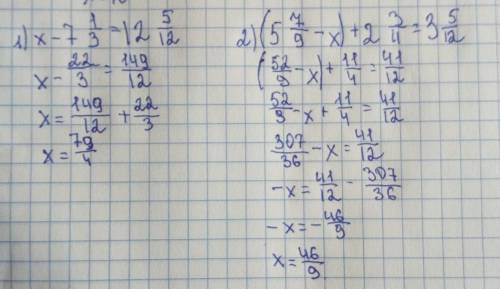 1) x - 7 1/3 = 12 5/12
x - 22/3 = 149/12
x = 149/12 + 22/3
x = 79/4
2) (5 7/9 - x) + 2 3/4 = 3 5/12
(52/9 - x) + 11/4 = 41/12
52/9 - x + 11/4 = 41/12
307/36 - x = 41/12
-x = 41/12 - 307/36
-x = - 46/9
x = 46/9